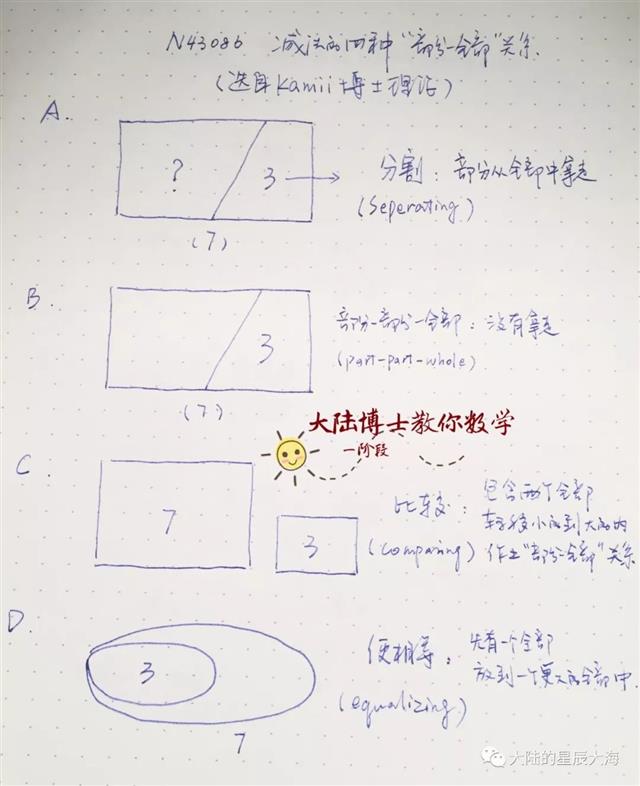 N43086 减法的四种“部分-全部”关系.
(选自Kamii博士理论)
A.
?
3
(7)
分割: 部分从全部中拿走
(Seperating)
B.
3
(7)
部分-部分-全部: 没有拿走
(part-part-whole)
大陆博士教你数学
一阶段
C
7
3
比较: 包含两个全部
转移小的到大的内
(Comparing) 作出“部分-全部”关系
D.
3
7
使相等: 先有一个全部
放到一个更大的全部中.
(equalizing)
大陆的星辰大海